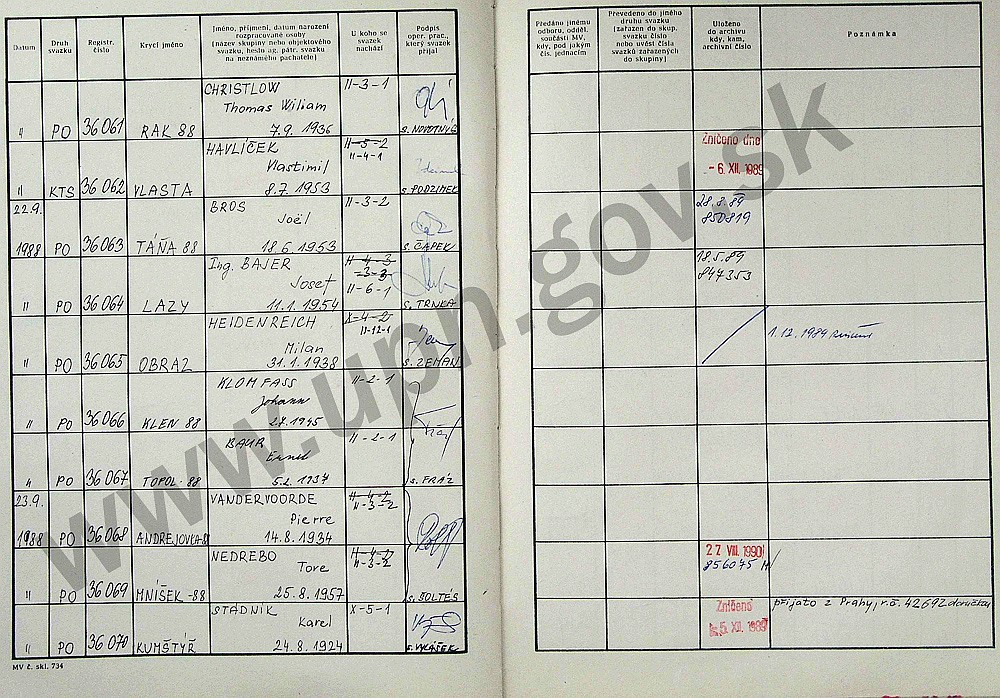 Datum
Druh svazku
Registr. číslo
Krycí jméno
Jméno, příjmení, datum narození
rozpracované osoby
(název skupiny nebo objektového
svazku, heslo ag. pátr. svazku
na neznámého pachatele)
U koho se svazek nachází
Podpis oper. prac., který svazek přijal
Předáno jinému odboru, odděl. součásti MV, kdy, pod jakým čís. jednacím
Převedeno do jiného druhu svazku (zařazen do skup. svazku číslo nebo uvést čísla svazků zařazených do skupiny)
Uloženo do archivu kdy, kam, archivní číslo
Poznámka
CHRISTLOW II-3-1
Thomas Wiliam
" PO 36061 RAK 88 7.9. 1936 s. NOVOTNÝ
HAVLÍČEK II-5-2
Vlastimil II-4-1
" KTS 36062 VLASTA 8.7. 1953 s. PODZIMEK
Zničeno dne
- 6. XII. 1989
22.9. BROS II-3-2
Joël
1988 PO 36063 TÁŇA 88 18.6. 1953 s. ČAPEK
28.8.89
850819
Ing. BAJER II-4-3
Josef -3-3
II-6-1
" PO 36064 LAZY 11.1. 1954 s. TRNKA
18.5.89
847353
HEIDENREICH X-4-2
Milan II-12-1
" PO 36065 OBRAZ 31.1. 1938 s. ZEMAN
1.12.1989
KLOMFASS II-2-1
Johann
" PO 36066 KLEN 88 2.7. 1945
BAUR II-2-1
Ernst
" PO 36067 TOPOL-88 5.2. 1937 s. FRÁZ
23.9. VANDERVOORDE II-4-2
Pierre II-3-2
1988 PO 36068 ANDREJOVKA-88 14.8. 1934
NEDREBO II-4-2
Tore II-3-2
" PO 36069 MNÍŠEK-88 25.8. 1957 s. ŠOLTÉS
27. VIII. 1990
856075
STADNÍK X-5-1
Karel
" PO 36070 KUMŠTÝŘ 24.8. 1924
Zničeno
5. XII. 1989
přijato z Prahy, r.č. 42692
MV č. skl. 734
www.upn.gov.sk